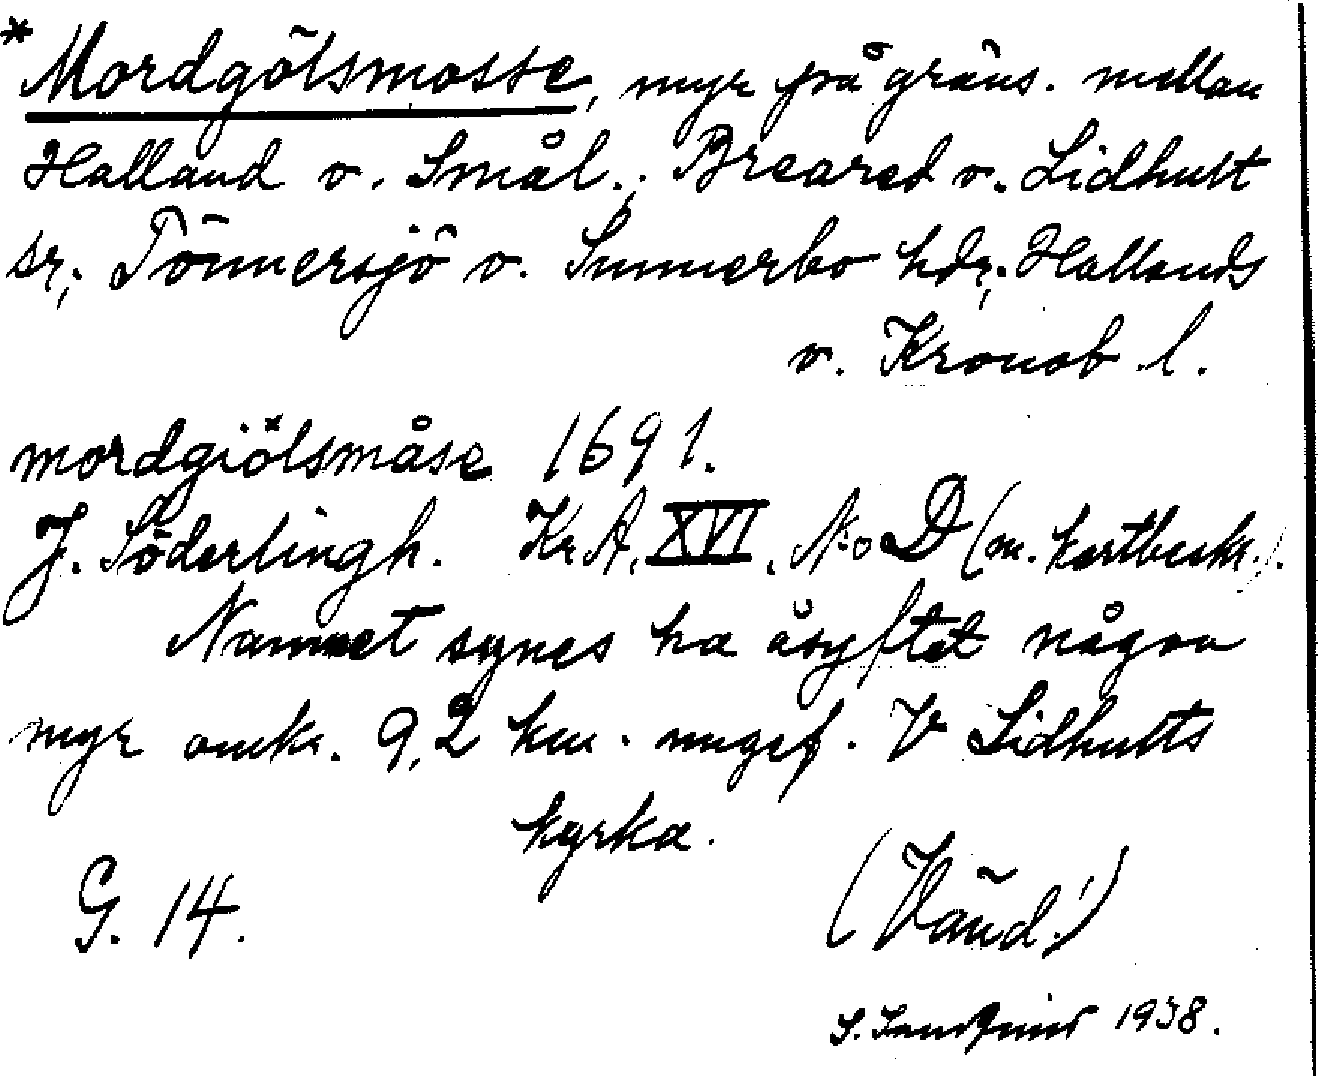 *Mordgölsmosse, myr på gräns. mellan
Halland o. Smål.; Breared o. Lidhult
sr; Tönnersjö o. Sunnerbo hdr; Hallands
o. Kronob. l.
mordgiölsmåse 1691.
J. Söderlingh. Kr.A. XVI. No D (m. kartbeskr.).
Namnet synes ha åsyftat någon
myr omkr. 9,2 km. ungef. V Lidhults
kyrka.
G. 14. (Vänd!)
S. 1938.